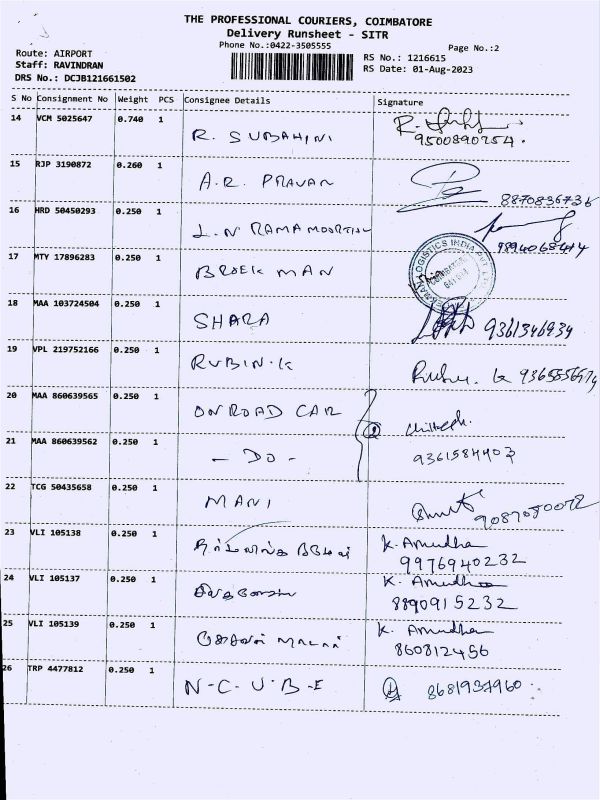 THE PROFESSIONAL COURIERS, COIMBATORE
Delivery Runsheet - SITR
Phone No.:0422-3505555
Page No.:2
Route: AIRPORT
Staff: RAVINDRAN
DRS No.: DCJB121661502
RS No.: 1216615
RS Date: 01-Aug-2023
S No Consignment No Weight PCS Consignee Details Signature
14 VCM 5025647 0.740 1 R. SUBAHINI
9500890254.
15 RJP 3190872 0.260 1 A.R. PRAVAN
8870836736
16 HRD 50450293 0.250 1 L.N RAMA MOORTHY
17 MTY 17896283 0.250 1 BROEK MAN
LOGISTICS INDIA PVT LTD
18 MAA 103724504 0.250 1 SHARA 9361346934
19 VPL 219752166 0.250 1 RUBIN.K
20 MAA 860639565 0.250 1 ON ROAD CAR
21 MAA 860639562 0.250 1 - DO -
9361584403
22 TCG 50435658 0.250 1 MANI
9087080072
23 VLI 105138 0.250 1 K. Amudha
9976940232
24 VLI 105137 0.250 1 K. Amudha
8890915232
25 VLI 105139 0.250 1 K. Amudha
860812456
26 TRP 4477812 0.250 1 N-C-U-B-E 8681937960